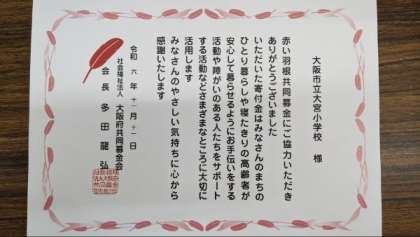 大阪市立大宮小学校 様
赤い羽根共同募金にご協力いただき
ありがとうございました
いただいた寄付金はみなさんのまちの
ひとり暮らしや寝たきりの高齢者が
安心して暮らせるようにお手伝いをする
活動や障がいのある人たちをサポート
する活動などさまざまなところに大切に
活用します
みなさんのやさしい気持ちに心から
感謝いたします
令和 六 年 十一 月 十一 日
社会福祉法人 大阪府共同募金会
会長 多田龍弘